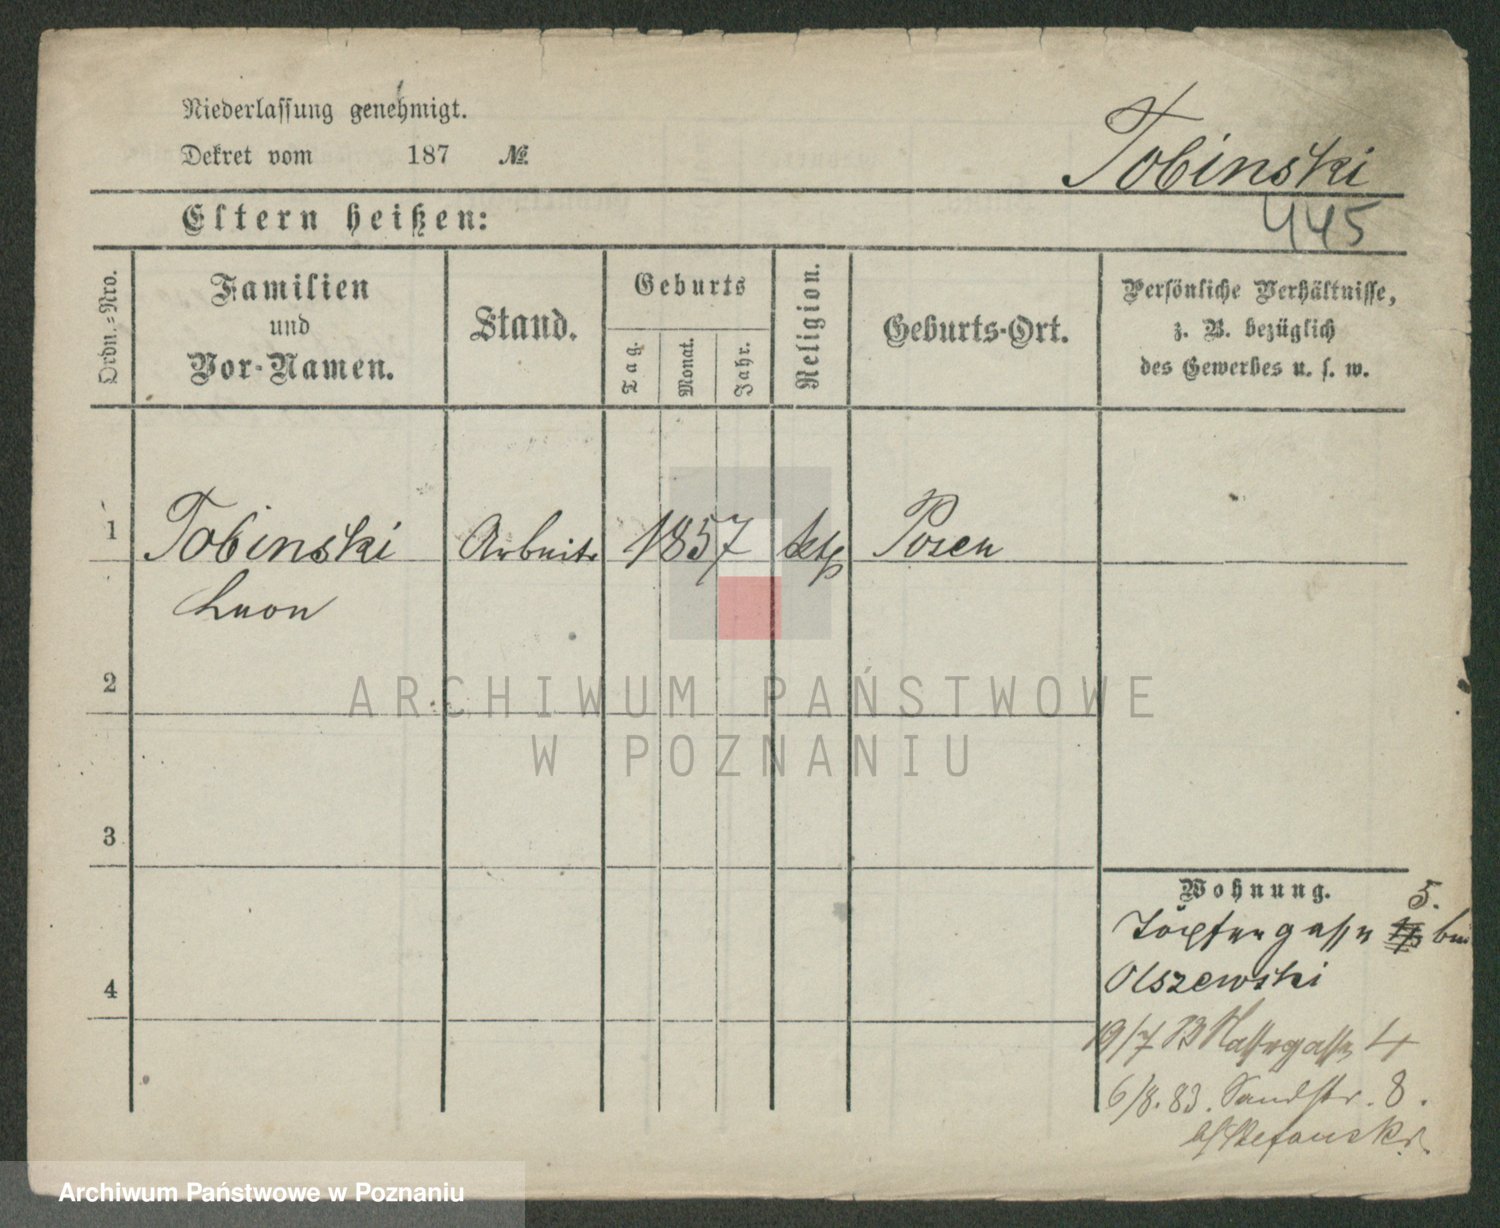 Niederlassung genehmigt.
Dekret vom 187 №
Tobinski
445
Eltern heißen:
Ordn.=Nro.
Familien
und
Vor-Namen.
Stand.
Geburts
Tag.
Monat.
Jahr.
Religion.
Geburts-Ort.
Persönliche Verhältnisse,
z. B. bezüglich
des Gewerbes u. s. w.
1 Tobinski Arbeiter 1857 kth Posen
Leon
2
3
4
Wohnung.
Töpfergasse 5. bei
Olszewski
19/7 gasse 4
6/8. 83. Sandstr. 8.
b/ Stefanski
ARCHIWUM PAŃSTWOWE
W POZNANIU
Archiwum Państwowe w Poznaniu